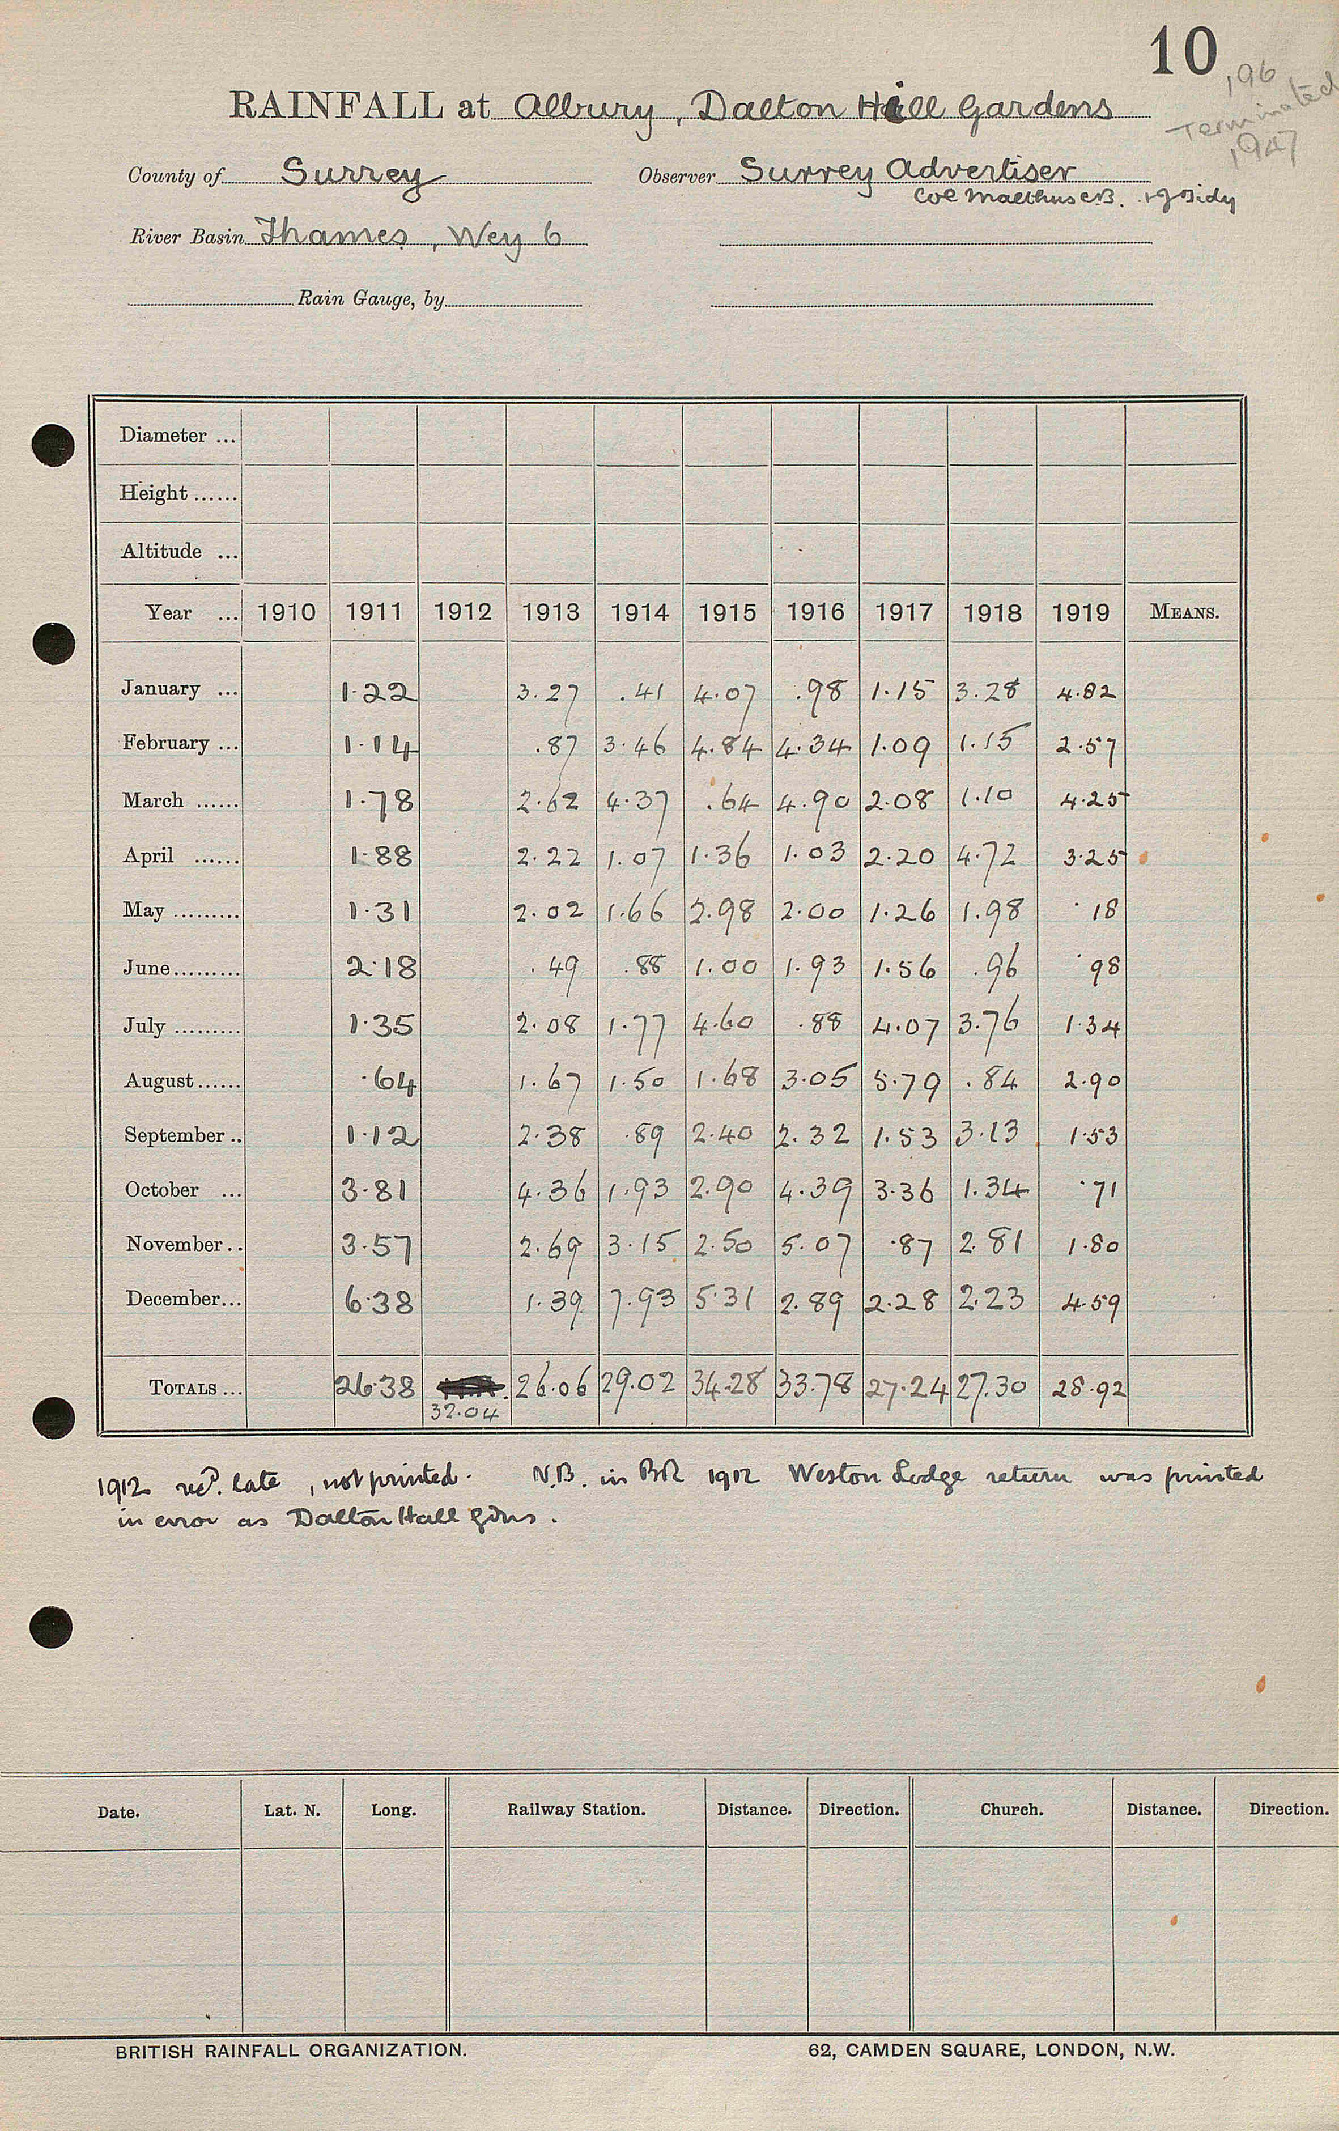 10
196
Terminated
1947
RAINFALL at Albury, Dalton Hill Gardens
County of Surrey Observer Surrey Advertiser
Col Malthus C.B.
River Basin Thames, Wey 6
Rain Gauge, by
Diameter ...
Height ......
Altitude ...
Year ... 1910 1911 1912 1913 1914 1915 1916 1917 1918 1919 MEANS.
January ... 1.22 3.27 .41 4.07 .98 1.15 3.28 4.82
February ... 1.14 .87 3.46 4.84 4.34 1.09 1.15 2.57
March ...... 1.78 2.62 4.37 .64 4.90 2.08 1.10 4.25
April ...... 1.88 2.22 1.07 1.36 1.03 2.20 4.72 3.25
May ......... 1.31 2.02 1.66 2.98 2.00 1.26 1.98 .18
June ......... 2.18 .49 .88 1.00 1.93 1.56 .96 .98
July ......... 1.35 2.08 1.77 4.60 .88 4.07 3.76 1.34
August ...... .64 1.67 1.50 1.68 3.05 5.79 .84 2.90
September .. 1.12 2.38 .89 2.40 2.32 1.53 3.13 1.53
October ... 3.81 4.36 1.93 2.90 4.39 3.36 1.34 .71
November .. 3.57 2.69 3.15 2.50 5.07 .87 2.81 1.80
December ... 6.38 1.39 7.93 5.31 2.89 2.28 2.23 4.59
TOTALS ... 26.38 32.04 26.06 29.02 34.28 33.78 27.24 27.30 28.92
1912 recd. late, not printed. N.B. in BR 1912 Weston Lodge return was printed
in error as Dalton Hall Gdns.
Date. Lat. N. Long. Railway Station. Distance. Direction. Church. Distance. Direction.
BRITISH RAINFALL ORGANIZATION. 62, CAMDEN SQUARE, LONDON, N.W.